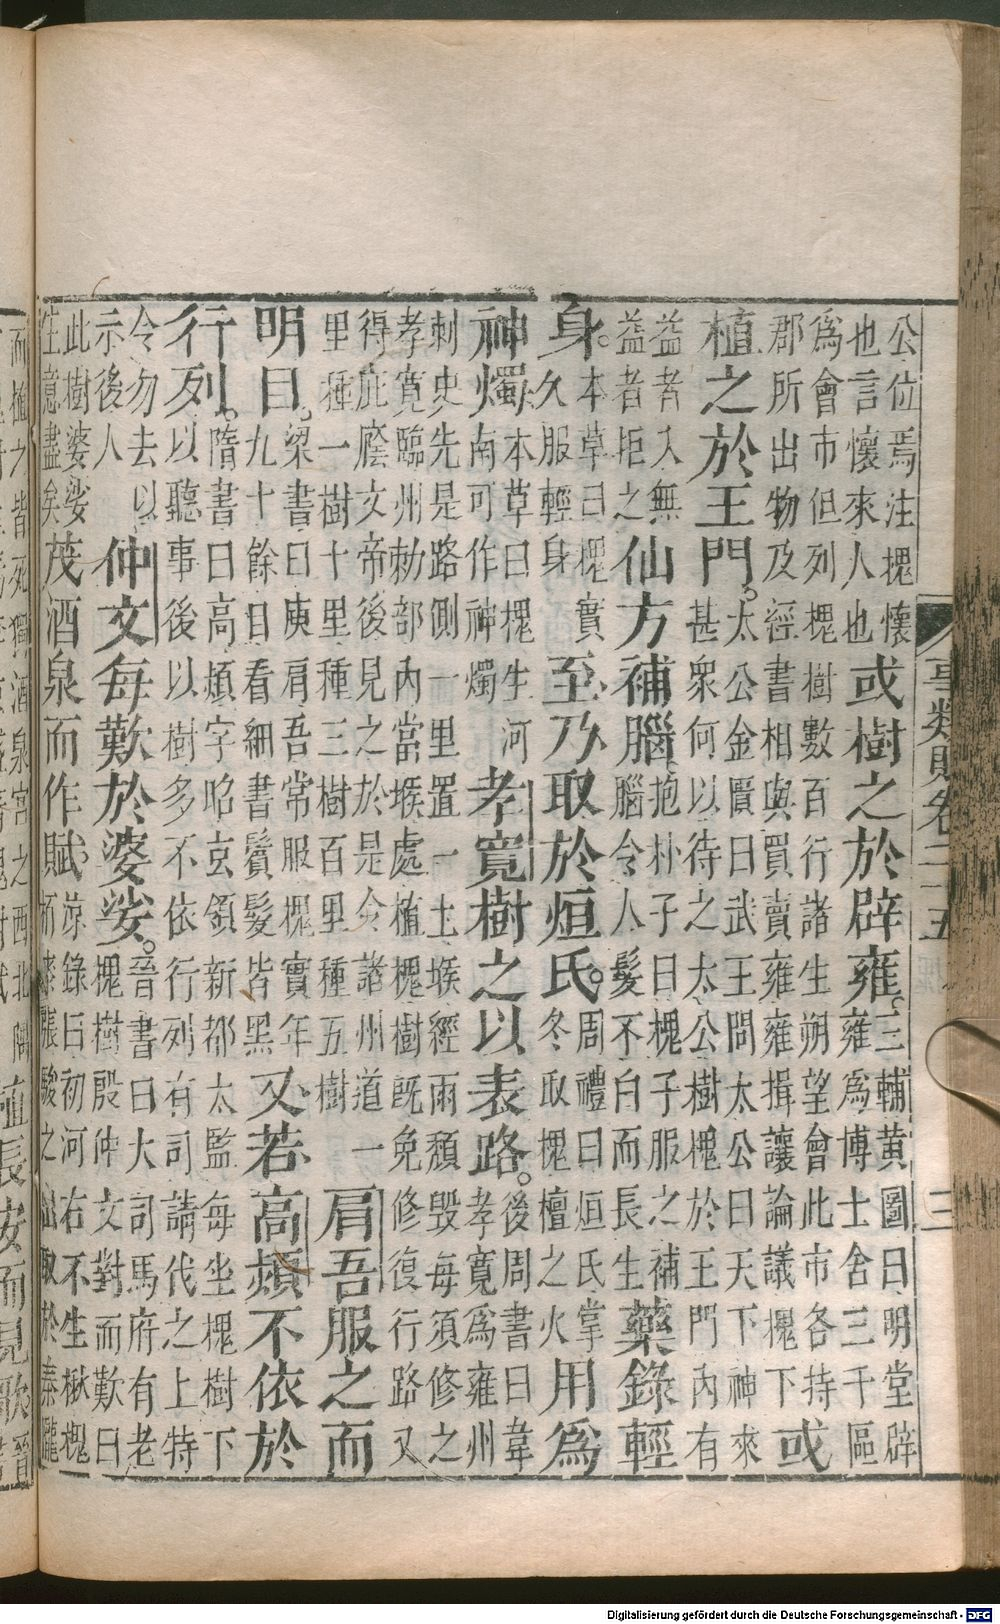 公位焉注槐懷
也言懷來人也
或樹之於辟雍。
三輔黃圖曰明堂辟
雍爲博士舍三千區
爲會市但列槐樹數百行諸生朔望會此市各持
郡所出物及經書相與買賣雍雍揖讓論議槐下
或
植之於王門。
太公金匱曰武王問太公曰天下神來
甚眾何以待之太公樹槐於王門內有
益者入無
益者拒之
仙方補腦
抱朴子曰槐子服之補
腦令人髮不白而長生
藥錄輕
身。
本草曰槐實
久服輕身
至乃取於烜氏。
周禮曰烜氏掌
冬取槐檀之火
用爲
神燭
本草曰槐生河
南可作神燭
孝寬樹之以表路。
後周書曰韋
孝寬爲雍州
刺史先是路側一里置一土堠經雨頹毀每須修之
孝寬臨州勅部內當堠處植槐樹既免修復行路又
得庇廕文帝後見之於是令諸州道一
里種一樹十里種三樹百里種五樹
肩吾服之而
明目。
梁書曰庾肩吾常服槐實年
九十餘目看細書鬢髮皆黑
又若高熲不依於
行列。
隋書曰高熲字昭玄領新都太監每坐槐樹下
以聽事後以樹多不依行列有司請代之上特
令勿去以
示後人
仲文每歎於婆娑。
晉書曰大司馬府有老
槐樹殷仲文對而歎曰
此樹婆娑
生意盡矣
茂酒泉而作賦。
涼錄曰初河右不生楸槐
栢漆張駿之世取於秦隴
事類賦卷二十五
三
而植之皆死獨酒泉宮之西北隅
Digitalisierung gefördert durch die Deutsche Forschungsgemeinschaft - DFG